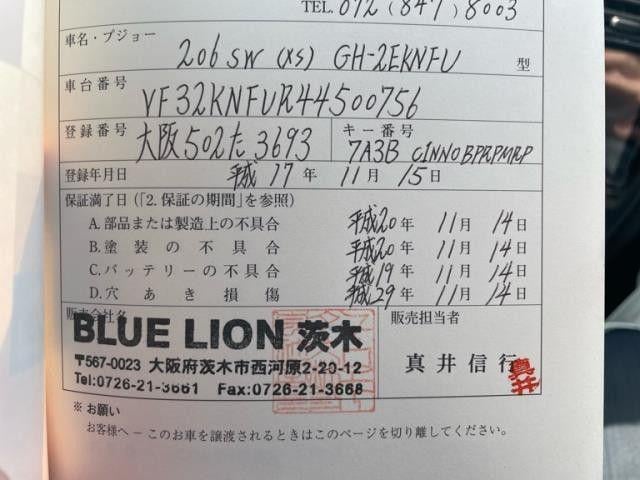 TEL. 072 (847) 8003
車名・プジョー 206 SW (XS) GH-2EKNFU 型
車台番号 VF32KNFUR44500756
登録番号 大阪502た3693 キー番号 7A3B C1NNOBPRPMRP
登録年月日 平成 17年 11月 15日
保証満了日(「2. 保証の期間」を参照)
A. 部品または製造上の不具合 平成20年 11月 14日
B. 塗装の不具合 平成20年 11月 14日
C. バッテリーの不具合 平成19年 11月 14日
D. 穴あき損傷 平成29年 11月 14日
販売会社名 販売担当者
BLUE LION 茨木
〒567-0023 大阪府茨木市西河原2-20-12
Tel:0726-21-3661 Fax:0726-21-3668
真井信行 真井
※ お願い
お客様へ − このお車を譲渡されるときはこのページを切り離してください。